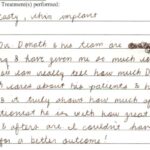 Treatment(s) performed:
asty, chin implant
Dr. Donath & his team are
ng & have given me so much
ou can really tell how much D
h cares about his patients & h
& it truly shows how much
he is with how great
& after. I couldn't ha
for a better outcome!